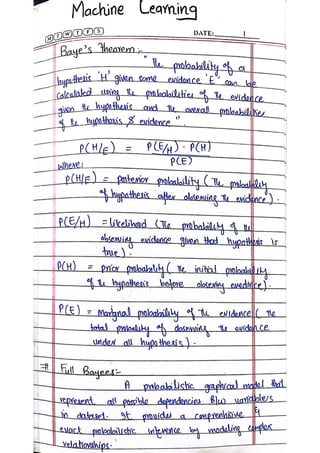 Machine Learning
M T W T F S
DATE:
Baye's Theorem:-
"The probability of a
hypothesis 'H' given some evidence 'E' can be
calculated using the probabilities of the evidence
given the hypothesis and the overall probabilities
of the hypothesis & evidence"
P(H/E) = P(E/H) · P(H)
P(E)
Where:
P(H/E) = posterior probability (The probability
of hypothesis after observing the evidence).
P(E/H) = likelihood (The probability of the
observing evidence given that hypothesis is
true).
P(H) = prior probability (The initial probability
of the hypothesis before observing evedince).
P(E) = Marginal probability of the evidence (The
total probability of observing the evidence
under all hypothesis).
Full Bayees:-
A probabilistic graphical model that
represent all possible dependencies B/w variables
in dataset. It provides a comprenhisive &
exact probabilistic inference by modeling complex
relationships.